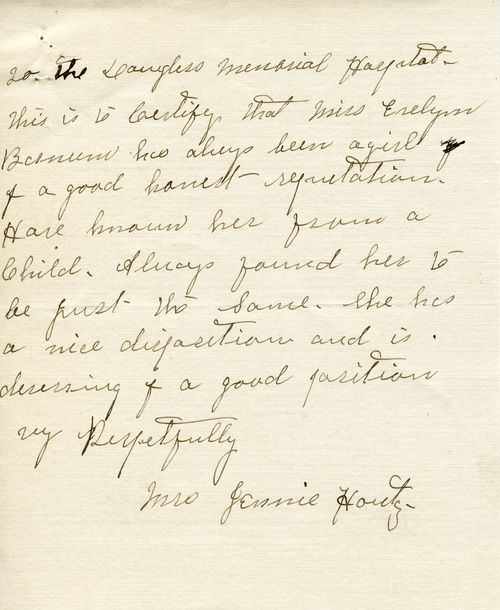 To the Douglass Memorial Hospital-
This is to Certify, that Miss Evelyn
has always been a girl
of a good honest reputation.
Have known her from a
Child. Always found her to
be just the same. She has
a nice disposition and is.
deserving of a good position
very Respetfully
Mrs Jennie Houtz-